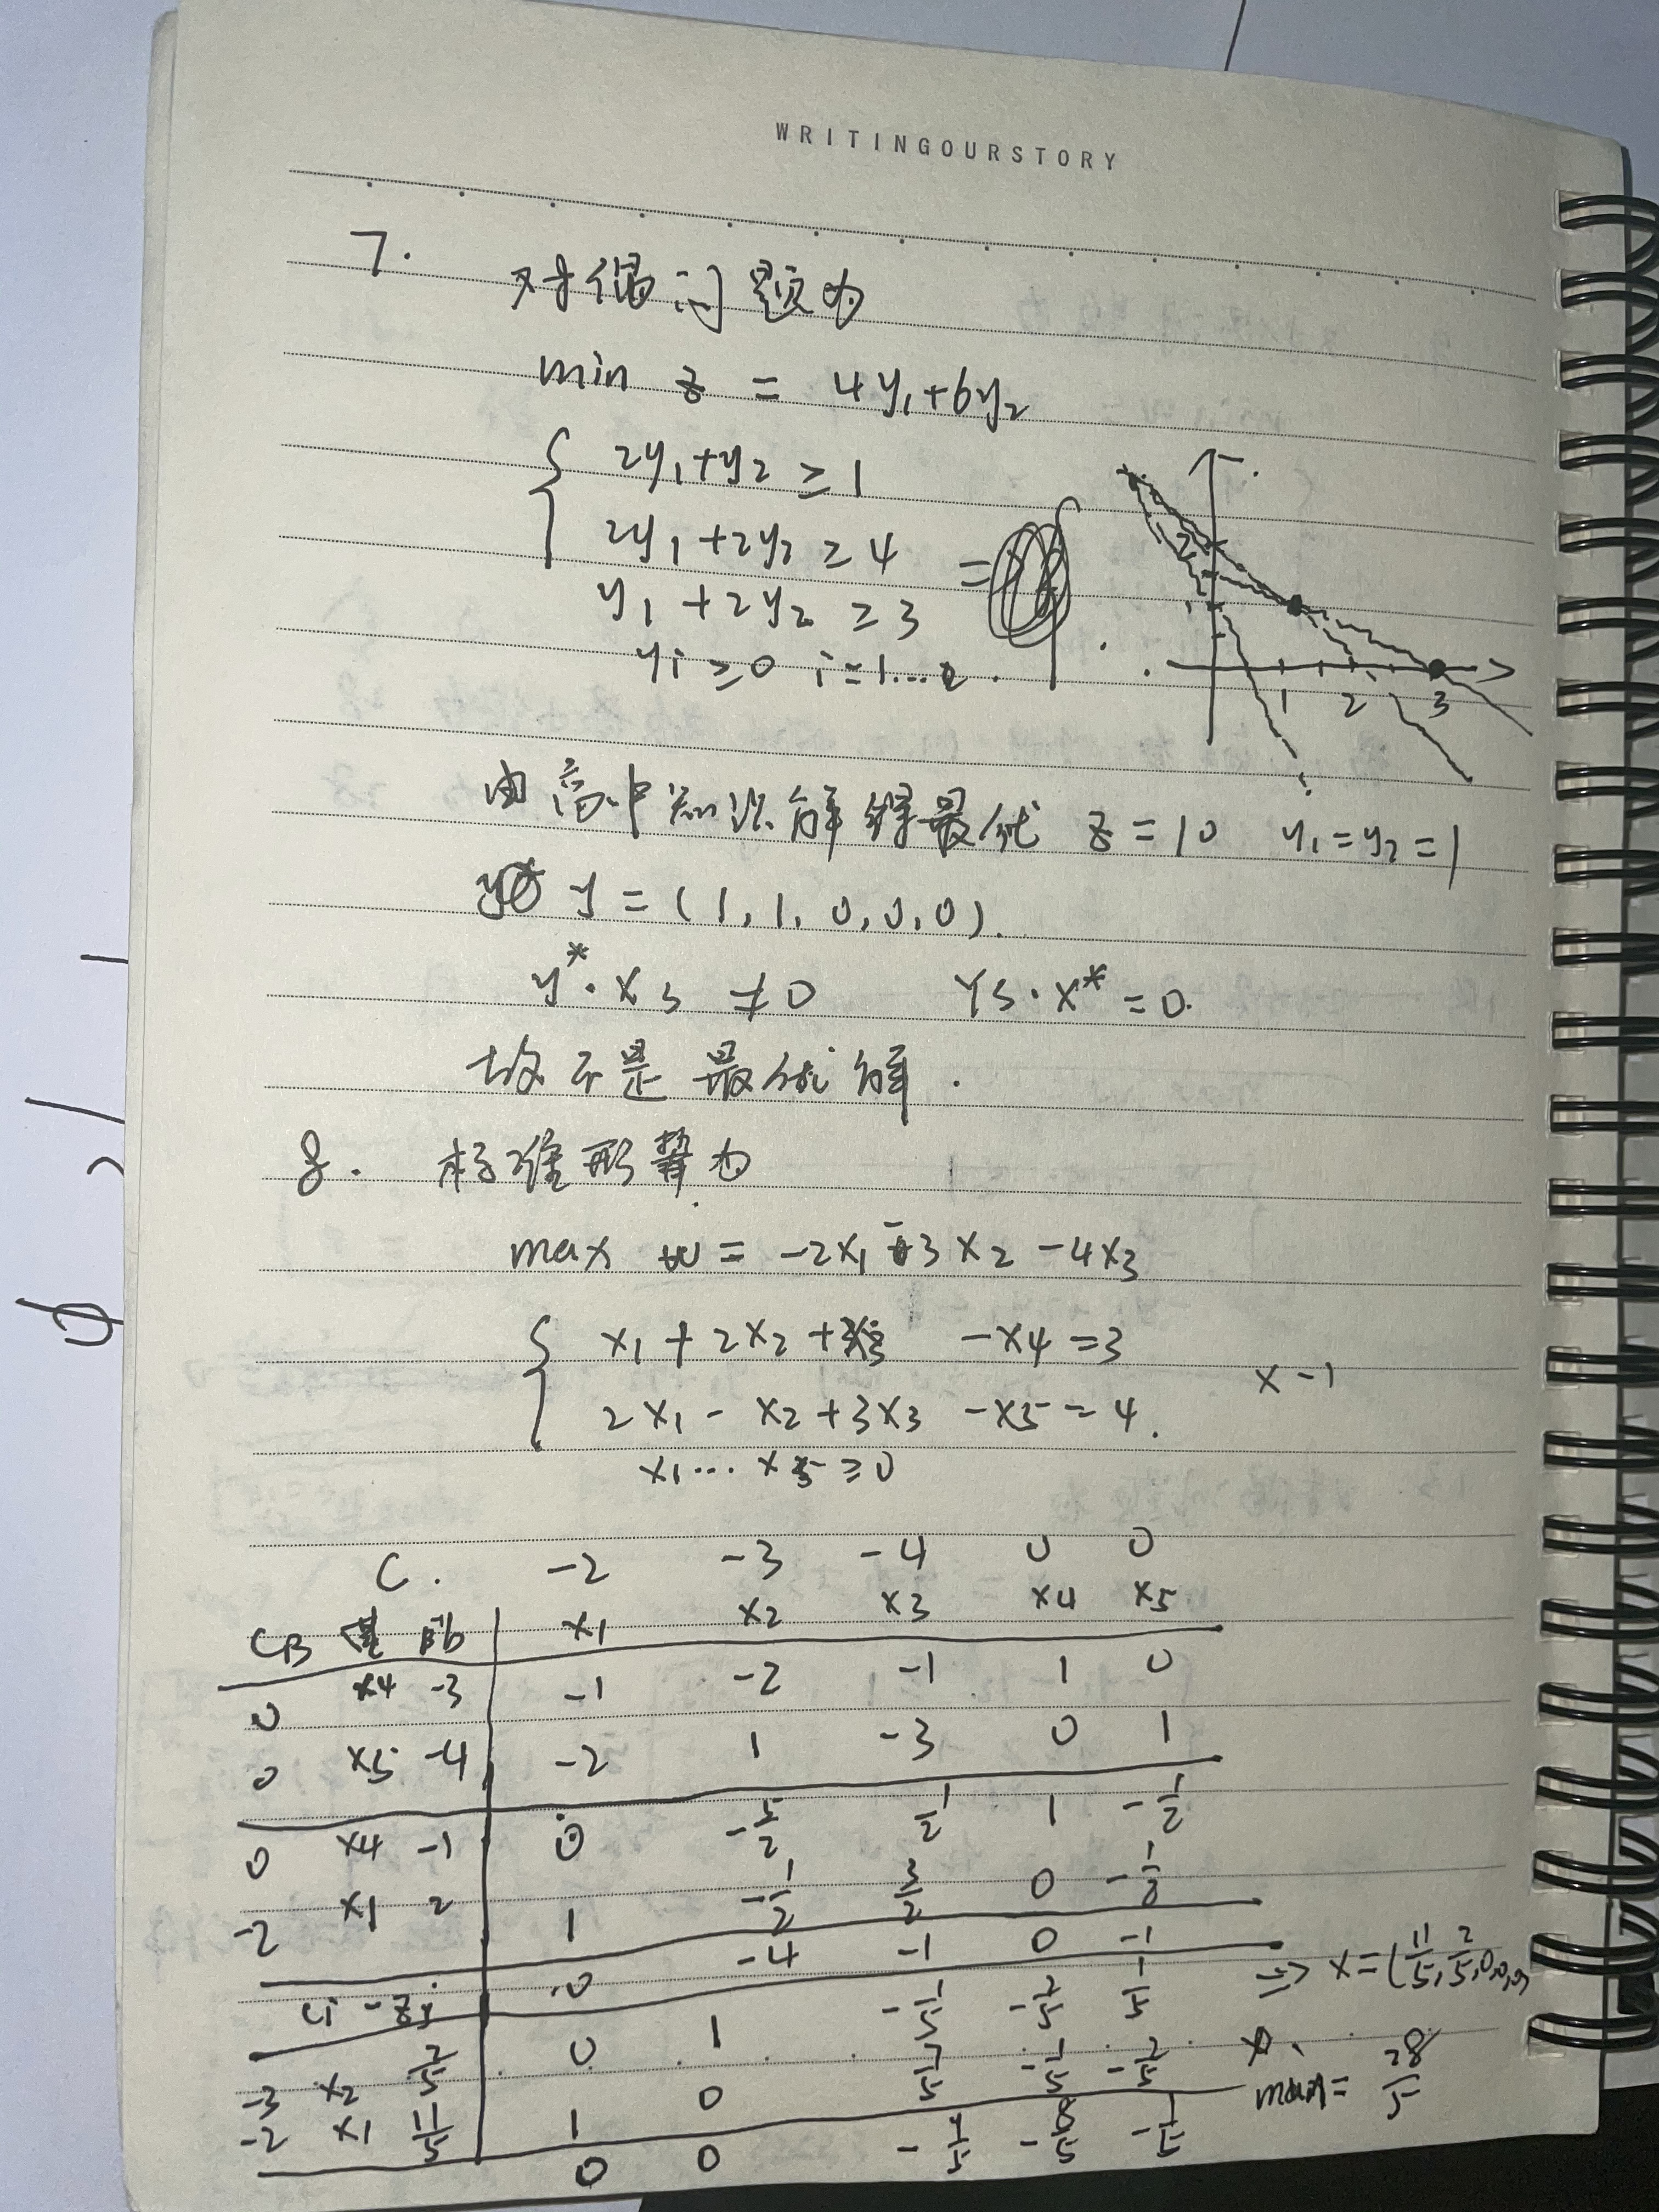 WRITINGOURSTORY
7. 对偶问题为
min z = 4y₁+6y₂
2y₁+y₂ ≥ 1
2y₁+2y₂ ≥ 4
y₁+2y₂ ≥ 3
yi ≥ 0 i=1...2.
2
1
1 2 3
由高中知识解得最优 z=10 y₁=y₂=1
y=(1,1,0,0,0).
y*·Xs ≠0 Ys·X*=0.
故不是最优解.
8. 标准形势为
max w = -2x₁-3x₂-4x₃
x₁+2x₂+x₃ -x4=3
2x₁-x₂+3x₃ -x5=4.
x-1
x₁...x5≥0
C. -2 -3 -4 0 0
CB 基 b x₁ x₂ x₃ x4 x5
0 x4 -3 -1 -2 -1 1 0
0 x5 -4 -2 1 -3 0 1
0 x4 -1 0 -5/2 1/2 1 -1/2
-2 x1 2 1 -1/2 3/2 0 -1/2
cj-zj 0 -4 -1 0 -1
-3 x2 2/5 0 1 -1/5 -2/5 1/5
-2 x1 11/5 1 0 7/5 -1/5 -2/5
0 0 -9/5 -8/5 -1/5
⇒ x=(11/5,2/5,0,0,0)
= 28/5